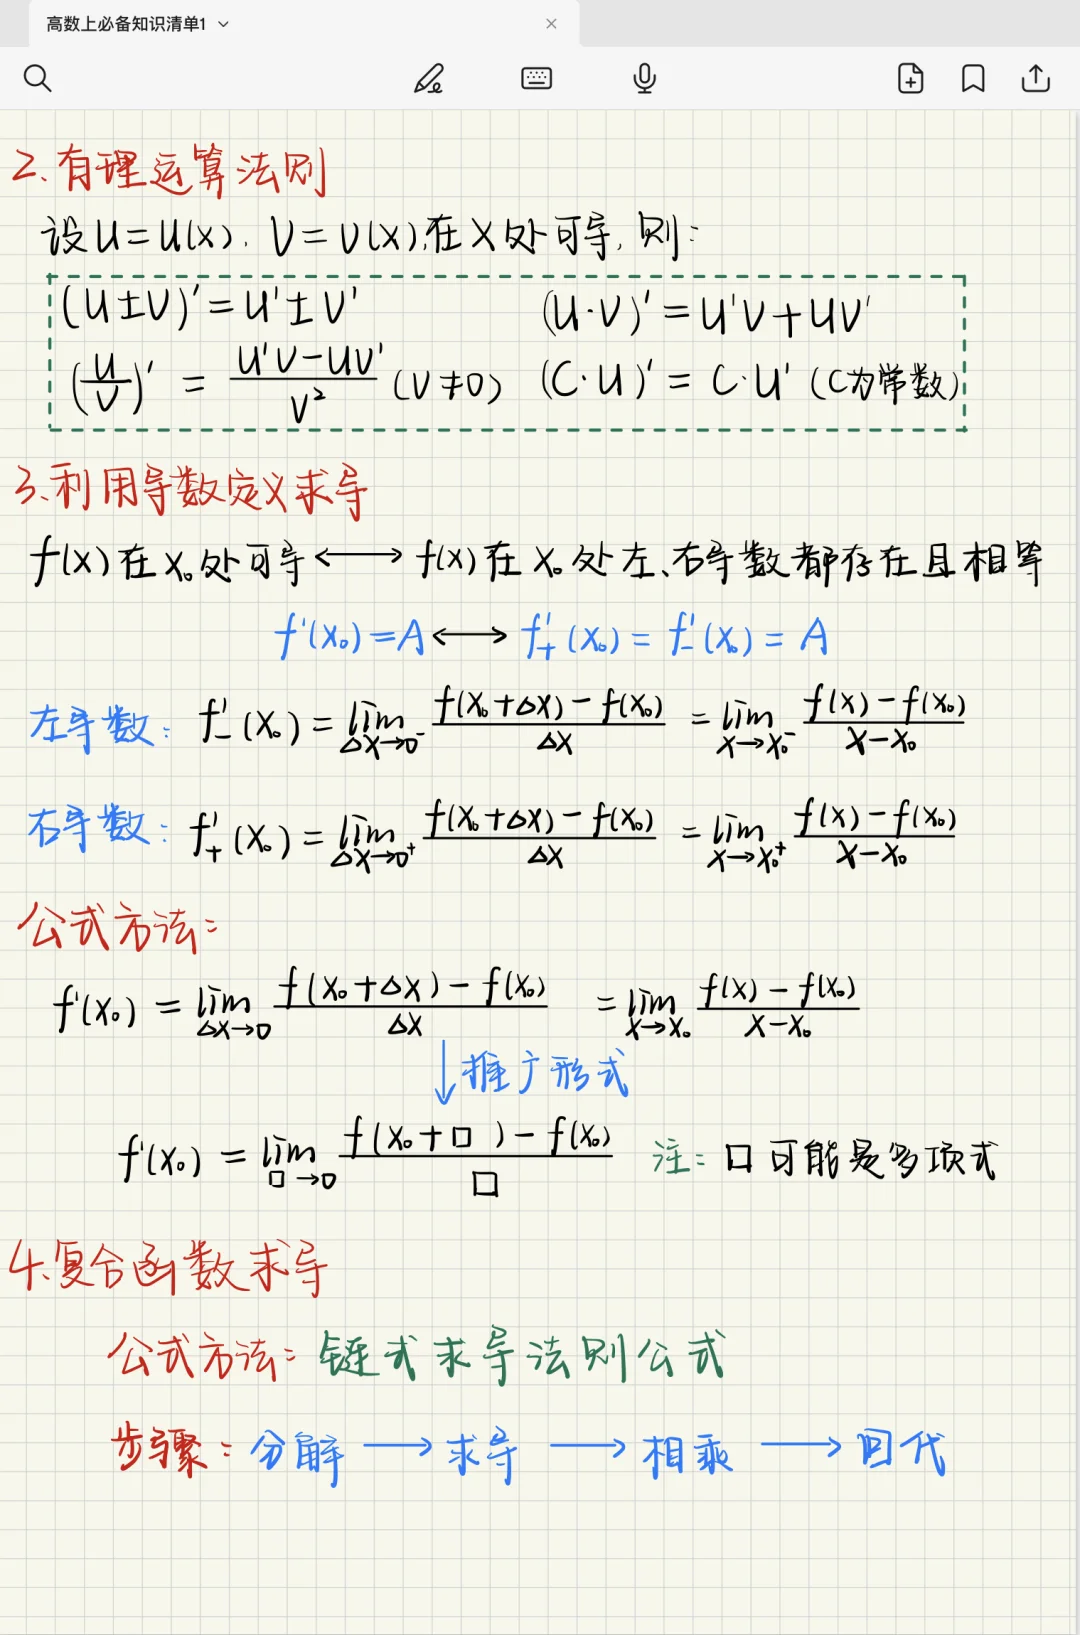 高数上必备知识清单1
2.有理运算法则
设u=u(x).V=v(x),在X处可导,则:
(u±v)'=u'±v' (u·v)'=u'v+uv'
(u/v)'=(u'v-uv')/v² (v≠0) (C·u)'=C·u' (C为常数)
3.利用导数定义求导
f(x)在x₀处可导⟷f(x)在x₀处左、右导数都存在且相等
f'(x₀)=A⟷f'₊(x₀)=f'₋(x₀)=A
左导数:f'₋(x₀)=lim_{Δx→0⁻} (f(x₀+Δx)-f(x₀))/Δx = lim_{x→x₀⁻} (f(x)-f(x₀))/(x-x₀)
右导数:f'₊(x₀)=lim_{Δx→0⁺} (f(x₀+Δx)-f(x₀))/Δx = lim_{x→x₀⁺} (f(x)-f(x₀))/(x-x₀)
公式方法:
f'(x₀)=lim_{Δx→0} (f(x₀+Δx)-f(x₀))/Δx = lim_{x→x₀} (f(x)-f(x₀))/(x-x₀)
↓推广形式
f'(x₀)=lim_{□→0} (f(x₀+□)-f(x₀))/□ 注:□可能是多项式
4.复合函数求导
公式方法:链式求导法则公式
步骤:分解→求导→相乘→回代